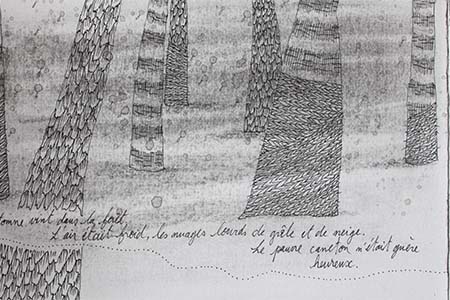 tomne vint dans la forêt.
L'air était froid, les nuages lourds de grêle et de neige.
Le pauvre caneton n'était guère
heureux.